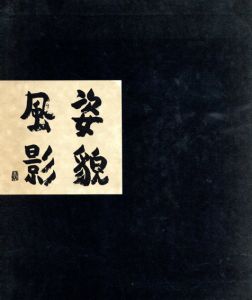 姿貌
風影